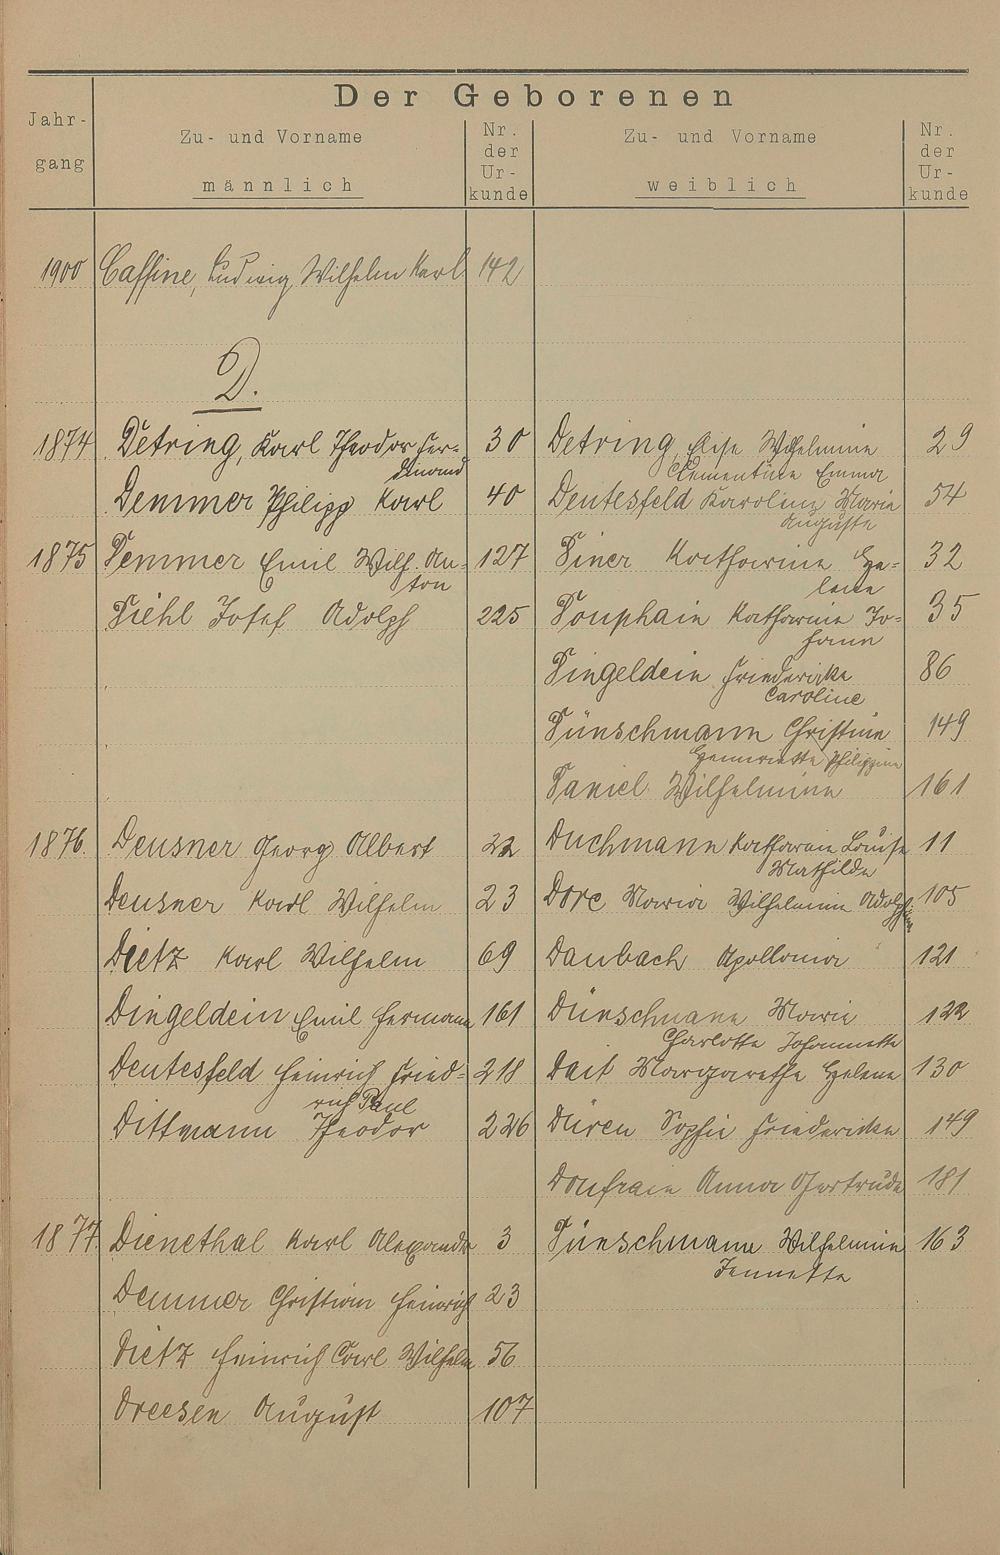 Der Geborenen
Jahr-
gang
Zu- und Vorname
männlich
Nr.
der
Ur-
kunde
Zu- und Vorname
weiblich
Nr.
der
Ur-
kunde
1900 Caffine, Ludwig Wilhelm Karl 142
D.
1874 Detring, Karl Theodor Fer- 30 Detring, Elise Wilhelmine 29
dinand Clementine Emma
Demmer Philipp Karl 40 Deutesfeld Karoline Maria 54
Auguste
1875 Demmer Emil Wilh. An- 127 Diner Katharine He- 32
ton lene
Diehl Josef Adolph 225 Douphain Katharine Jo- 35
hann
Dingeldein Friedericke 86
Caroline
Dünschmann Christine 149
Henriette Philippine
Daniel Wilhelmine 161
1876. Deusner Georg Albert 22 Duchmann Katharine Louise 11
Mathilde
Deusner Karl Wilhelm 23 Dorc Maria Wilhelmine 105
Dietz Karl Wilhelm 69 Daubach Apollonia 121
Dingeldein Emil Hermann 161 Dünschmann Marie 122
Charlotte Johannette
Deutesfeld Heinrich Fried- 218 Dait Margarethe Helene 130
rich Paul
Dittmann Theodor 226 Düren Sophie Friedericke 149
Donfrain Anna Gertrude 181
1877. Dienethal Karl Alexander 3 Dünschmann Wilhelmine 163
Jennette
Demmer Christian Heinrich 23
Dietz Heinrich Carl Wilhelm 56
Dreesen August 107